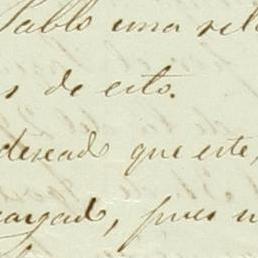 Pablo una rela
s de esto.
deseado que este,
cargado, pues n